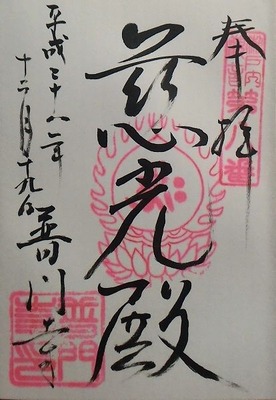 奉拝
慈光殿
平成二十八年
十二月十九日 普門寺